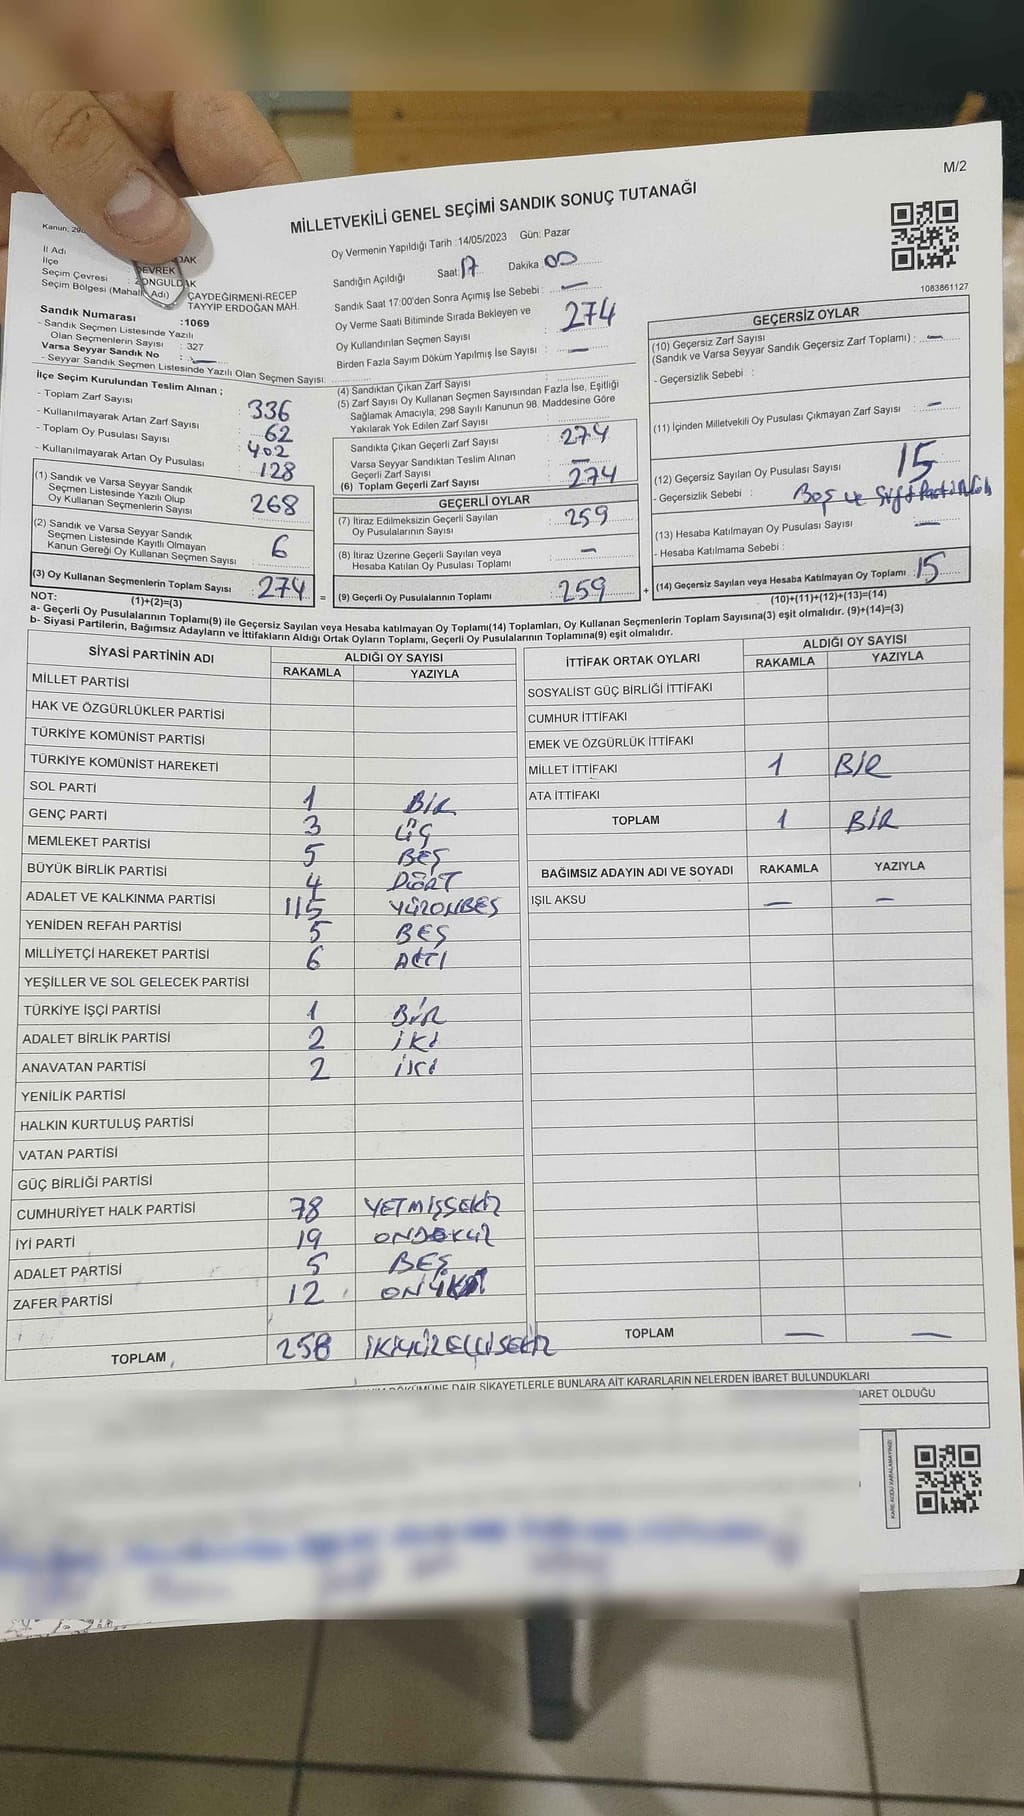 M/2
MİLLETVEKİLİ GENEL SEÇİMİ SANDIK SONUÇ TUTANAĞI
Kanun; 29
İl Adı DAK
İlçe DEVREK
Seçim Çevresi : ZONGULDAK
Seçim Bölgesi (Mahalle Adı) : ÇAYDEĞİRMENİ-RECEP
TAYYİP ERDOĞAN MAH.
Sandık Numarası :1069
- Sandık Seçmen Listesinde Yazılı
Olan Seçmenlerin Sayısı : 327
Varsa Seyyar Sandık No : —
- Seyyar Sandık Seçmen Listesinde Yazılı Olan Seçmen Sayısı:
İlçe Seçim Kurulundan Teslim Alınan ;
- Toplam Zarf Sayısı : 336
- Kullanılmayarak Artan Zarf Sayısı : 62
- Toplam Oy Pusulası Sayısı : 402
- Kullanılmayarak Artan Oy Pusulası : 128
(1) Sandık ve Varsa Seyyar Sandık
Seçmen Listesinde Yazılı Olup
Oy Kullanan Seçmenlerin Sayısı : 268
(2) Sandık ve Varsa Seyyar Sandık
Seçmen Listesinde Kayıtlı Olmayan
Kanun Gereği Oy Kullanan Seçmen Sayısı : 6
(3) Oy Kullanan Seçmenlerin Toplam Sayısı : 274 =
(1)+(2)=(3)
Oy Vermenin Yapıldığı Tarih :14/05/2023 Gün: Pazar
Sandığın Açıldığı Saat: 17 Dakika : 00
Sandık Saat 17:00'den Sonra Açımış İse Sebebi : —
Oy Verme Saati Bitiminde Sırada Bekleyen ve
Oy Kullandırılan Seçmen Sayısı : 274
Birden Fazla Sayım Döküm Yapılmış İse Sayısı : —
(4) Sandıktan Çıkan Zarf Sayısı :
(5) Zarf Sayısı Oy Kullanan Seçmen Sayısından Fazla İse, Eşitliği
Sağlamak Amacıyla, 298 Sayılı Kanunun 98. Maddesine Göre
Yakılarak Yok Edilen Zarf Sayısı :
Sandıkta Çıkan Geçerli Zarf Sayısı : 274
Varsa Seyyar Sandıktan Teslim Alınan
Geçerli Zarf Sayısı : —
(6) Toplam Geçerli Zarf Sayısı : 274
GEÇERLİ OYLAR
(7) İtiraz Edilmeksizin Geçerli Sayılan
Oy Pusulalarının Sayısı : 259
(8) İtiraz Üzerine Geçerli Sayılan veya
Hesaba Katılan Oy Pusulası Toplamı : —
(9) Geçerli Oy Pusulalarının Toplamı : 259 +
1083861127
GEÇERSİZ OYLAR
(10) Geçersiz Zarf Sayısı
(Sandık ve Varsa Seyyar Sandık Geçersiz Zarf Toplamı) : —
- Geçersizlik Sebebi :
(11) İçinden Milletvekili Oy Pusulası Çıkmayan Zarf Sayısı : —
(12) Geçersiz Sayılan Oy Pusulası Sayısı : 15
- Geçersizlik Sebebi : Boş ve
(13) Hesaba Katılmayan Oy Pusulası Sayısı : —
- Hesaba Katılmama Sebebi :
(14) Geçersiz Sayılan veya Hesaba Katılmayan Oy Toplamı : 15
(10)+(11)+(12)+(13)=(14)
NOT:
a- Geçerli Oy Pusulalarının Toplamı(9) ile Geçersiz Sayılan veya Hesaba katılmayan Oy Toplamı(14) Toplamları, Oy Kullanan Seçmenlerin Toplam Sayısına(3) eşit olmalıdır. (9)+(14)=(3)
b- Siyasi Partilerin, Bağımsız Adayların ve İttifakların Aldığı Ortak Oyların Toplamı, Geçerli Oy Pusulalarının Toplamına(9) eşit olmalıdır.
SİYASİ PARTİNİN ADI ALDIĞI OY SAYISI
RAKAMLA YAZIYLA
MİLLET PARTİSİ
HAK VE ÖZGÜRLÜKLER PARTİSİ
TÜRKİYE KOMÜNİST PARTİSİ
TÜRKİYE KOMÜNİST HAREKETİ
SOL PARTİ 1 BİR
GENÇ PARTİ 3 ÜÇ
MEMLEKET PARTİSİ 5 BEŞ
BÜYÜK BİRLİK PARTİSİ 4 DÖRT
ADALET VE KALKINMA PARTİSİ 115 YÜZONBEŞ
YENİDEN REFAH PARTİSİ 5 BEŞ
MİLLİYETÇİ HAREKET PARTİSİ 6 ALTI
YEŞİLLER VE SOL GELECEK PARTİSİ
TÜRKİYE İŞÇİ PARTİSİ 1 BİR
ADALET BİRLİK PARTİSİ 2 İKİ
ANAVATAN PARTİSİ 2 İKİ
YENİLİK PARTİSİ
HALKIN KURTULUŞ PARTİSİ
VATAN PARTİSİ
GÜÇ BİRLİĞİ PARTİSİ
CUMHURİYET HALK PARTİSİ 78 YETMİŞSEKİZ
İYİ PARTİ 19 ONDOKUZ
ADALET PARTİSİ 5 BEŞ
ZAFER PARTİSİ 12 ONİKİ
TOPLAM 258 İKİYÜZELLİSEKİZ
İTTİFAK ORTAK OYLARI ALDIĞI OY SAYISI
RAKAMLA YAZIYLA
SOSYALİST GÜÇ BİRLİĞİ İTTİFAKI
CUMHUR İTTİFAKI
EMEK VE ÖZGÜRLÜK İTTİFAKI
MİLLET İTTİFAKI 1 BİR
ATA İTTİFAKI
TOPLAM 1 BİR
BAĞIMSIZ ADAYIN ADI VE SOYADI RAKAMLA YAZIYLA
IŞIL AKSU — —
TOPLAM — —
DÖKÜMÜNE DAİR ŞİKAYETLERLE BUNLARA AİT KARARLARIN NELERDEN İBARET BULUNDUKLARI
İBARET OLDUĞU
KARE KODU KARALAMAYINIZ!